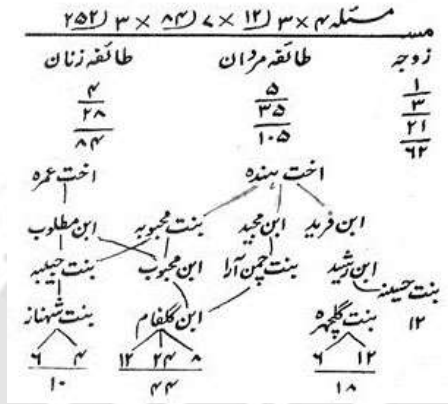 مسئلہ ۴ × ۳ (۱۲ × ۷ (۸۴ × ۳ (۲۵۲
مـ
زوجہ طائفہ مردان طائفہ زنان
۱ ۵ ۴
۳ ۳۵ ۲۸
۲۱ ۱۰۵ ۸۴
۶۲
اخت ہندہ اخت عمرہ
ابن فرید ابن مجید بنت محبوبہ ابن مطلوب
ابن رشید بنت چمن آرا ابن محبوب بنت حبیبہ
بنت حسینہ
۱۲
بنت گلچہرہ ابن گلفام بنت شہناز
۱۲ ۶ ۸ ۲۴ ۱۲ ۴ ۶
۱۸ ۴۴ ۱۰